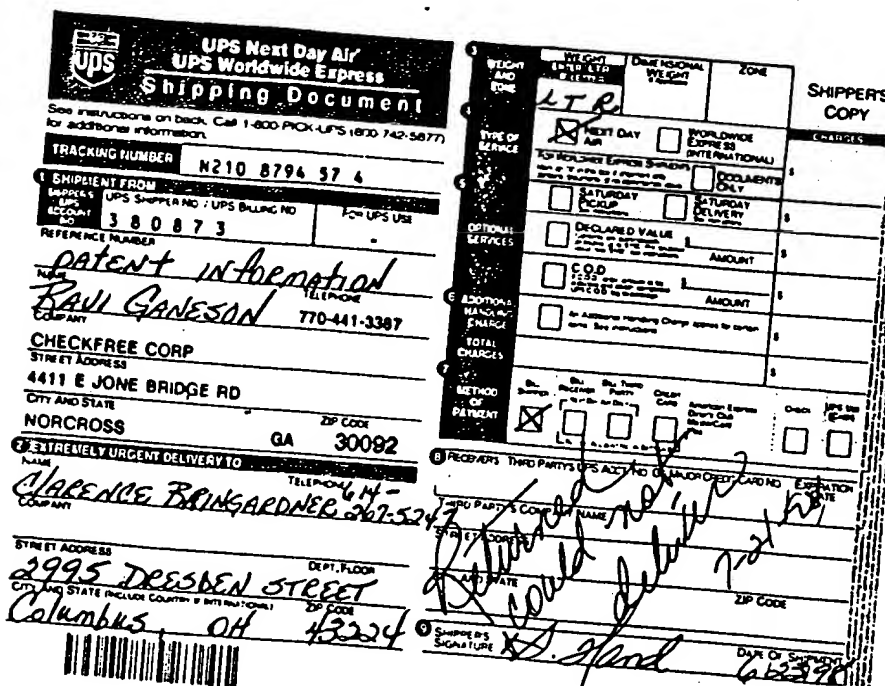 ups
UPS Next Day Air
UPS Worldwide Express
Shipping Document
See instructions on back. Call 1-800-PICK-UPS (800-742-5877)
for additional information.
TRACKING NUMBER N210 8794 57 4
1 SHIPMENT FROM
SHIPPER'S UPS ACCOUNT NO
UPS SHIPPER NO / UPS BILLING NO
FOR UPS USE
380873
REFERENCE NUMBER
PATENT INFORMATION
NAME
TELEPHONE
RAVI GANESON 770-441-3387
COMPANY
CHECKFREE CORP
STREET ADDRESS
4411 E JONE BRIDGE RD
CITY AND STATE
ZIP CODE
NORCROSS GA 30092
2 EXTREMELY URGENT DELIVERY TO
NAME
TELEPHONE 614-
CLARENCE BRINGARDNER 267-5247
COMPANY
STREET ADDRESS
DEPT./FLOOR
2995 DRESDEN STREET
CITY AND STATE (INCLUDE COUNTRY IF INTERNATIONAL)
ZIP CODE
Columbus, OH 43224
3 WEIGHT AND ZONE
WEIGHT
DIMENSIONAL WEIGHT
ZONE
SHIPPER'S COPY
LTR
CHARGES
4 TYPE OF SERVICE
NEXT DAY AIR
WORLDWIDE EXPRESS (INTERNATIONAL)
FOR WORLDWIDE EXPRESS SHIPMENTS
DOCUMENTS ONLY
$
5 OPTIONAL SERVICES
SATURDAY PICKUP
SATURDAY DELIVERY
$
DECLARED VALUE
$
AMOUNT
$
C.O.D.
$
AMOUNT
$
6 ADDITIONAL HANDLING CHARGE
An Additional Handling Charge applies for certain items. See instructions
$
TOTAL CHARGES
$
7 METHOD OF PAYMENT
BILL SHIPPER
BILL RECEIVER
BILL THIRD PARTY
CREDIT CARD
American Express
Diner's Club
MasterCard
CHECK
8 RECEIVER'S / THIRD PARTY'S UPS ACCT NO. OR MAJOR CREDIT CARD NO.
EXPIRATION DATE
THIRD PARTY'S COMPANY NAME
STREET ADDRESS
CITY AND STATE
ZIP CODE
Returned
could not
deliver
9 SHIPPER'S SIGNATURE
DATE OF SHIPMENT